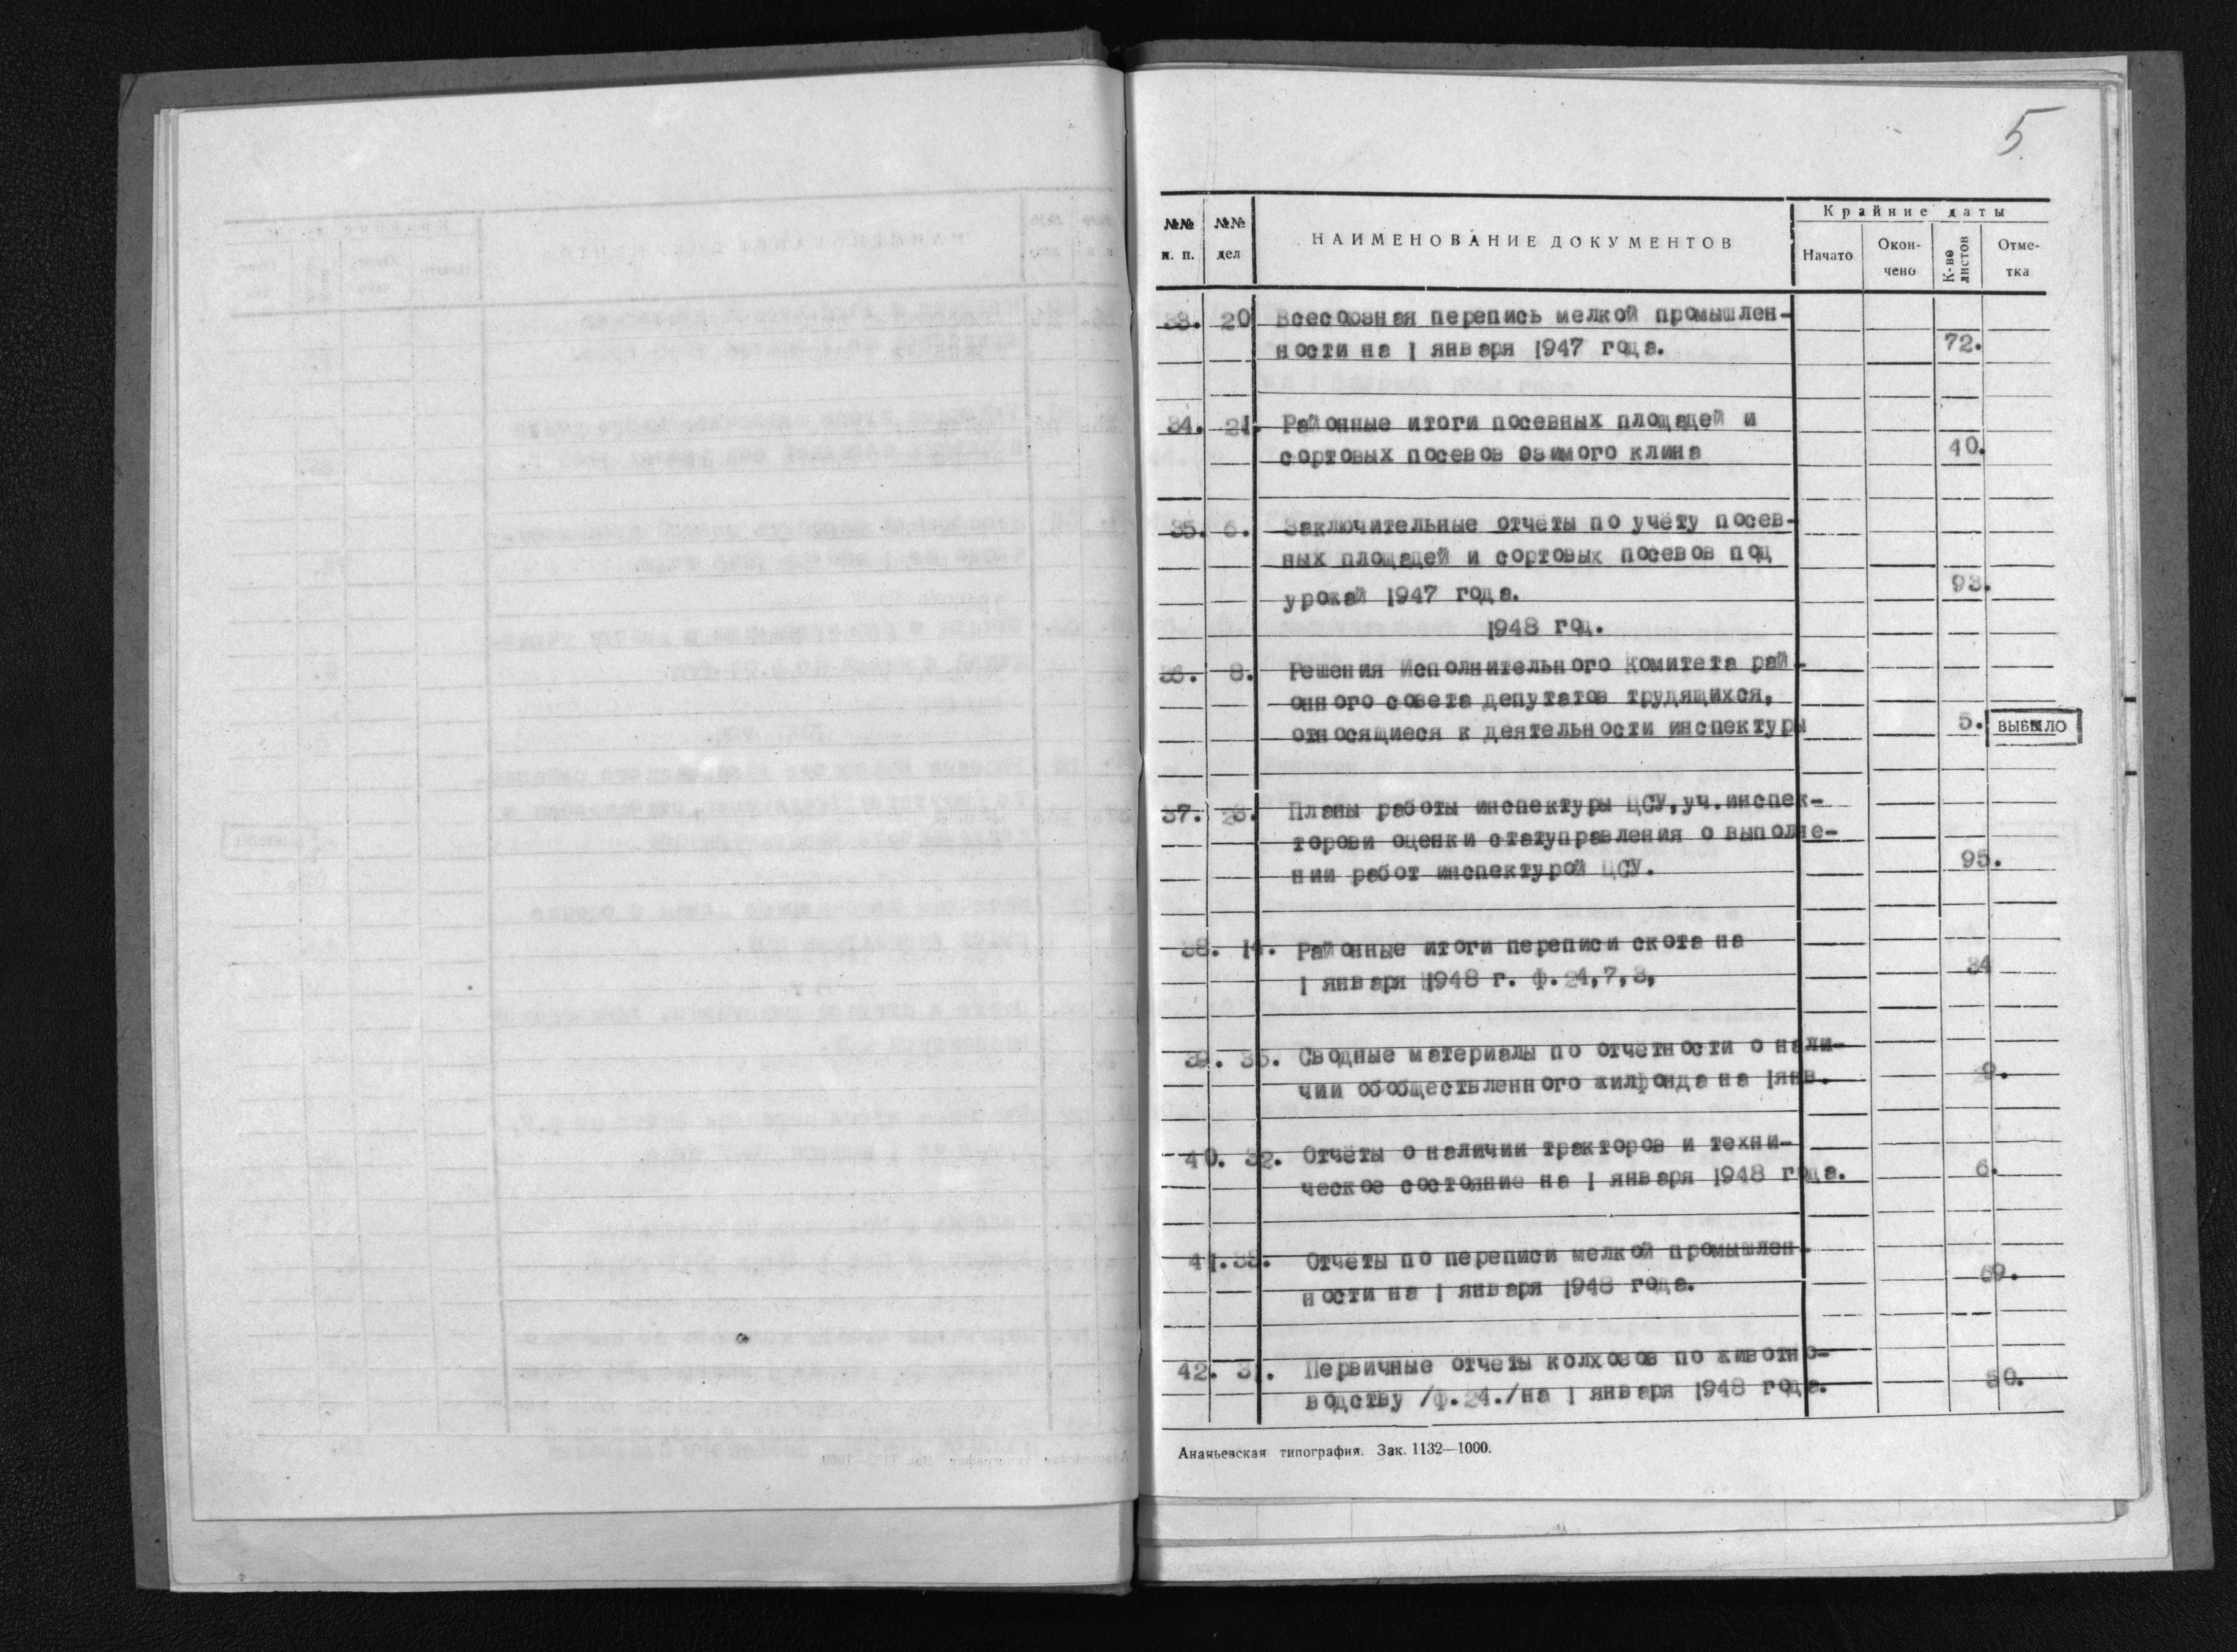 5
№№ п. п. №№ дел НАИМЕНОВАНИЕ ДОКУМЕНТОВ Крайние даты
Начато Окон-чено К-во листов Отме-тка
33. 20 Всесоюзная перепись мелкой промышлен-
ности на 1 января 1947 года. 72.
34. 21. Районные итоги посевных площадей и
сортовых посевов озимого клина 40.
35. 6. Заключительные отчёты по учёту посев-
ных площадей и сортовых посевов под
урожай 1947 года. 93.
1948 год.
36. 8. Решения Исполнительного Комитета рай-
онного совета депутатов трудящихся,
относящиеся к деятельности инспектуры 5. ВЫБЫЛО
37. Планы работы инспектуры ЦСУ, уч.инспек-
торови оценки статуправления о выполне-
нии работ инспектурой ЦСУ. 95.
38. 14. Районные итоги переписи скота на
1 января 1948 г. ф.24,7,8, 34
39. 35. Сводные материалы по отчётности о нали-
чии обобществленного жилфонда на 1янв. 9.
40. 32. Отчёты о наличии тракторов и техни-
ческое состояние на 1 января 1948 года. 6.
41. 33. Отчёты по переписи мелкой промышлен-
ности на 1 января 1948 года. 69.
42. 31. Первичные отчёты колхозов по животно-
водству /ф.24./на 1 января 1948 года. 50.
Ананьевская типография. Зак. 1132—1000.